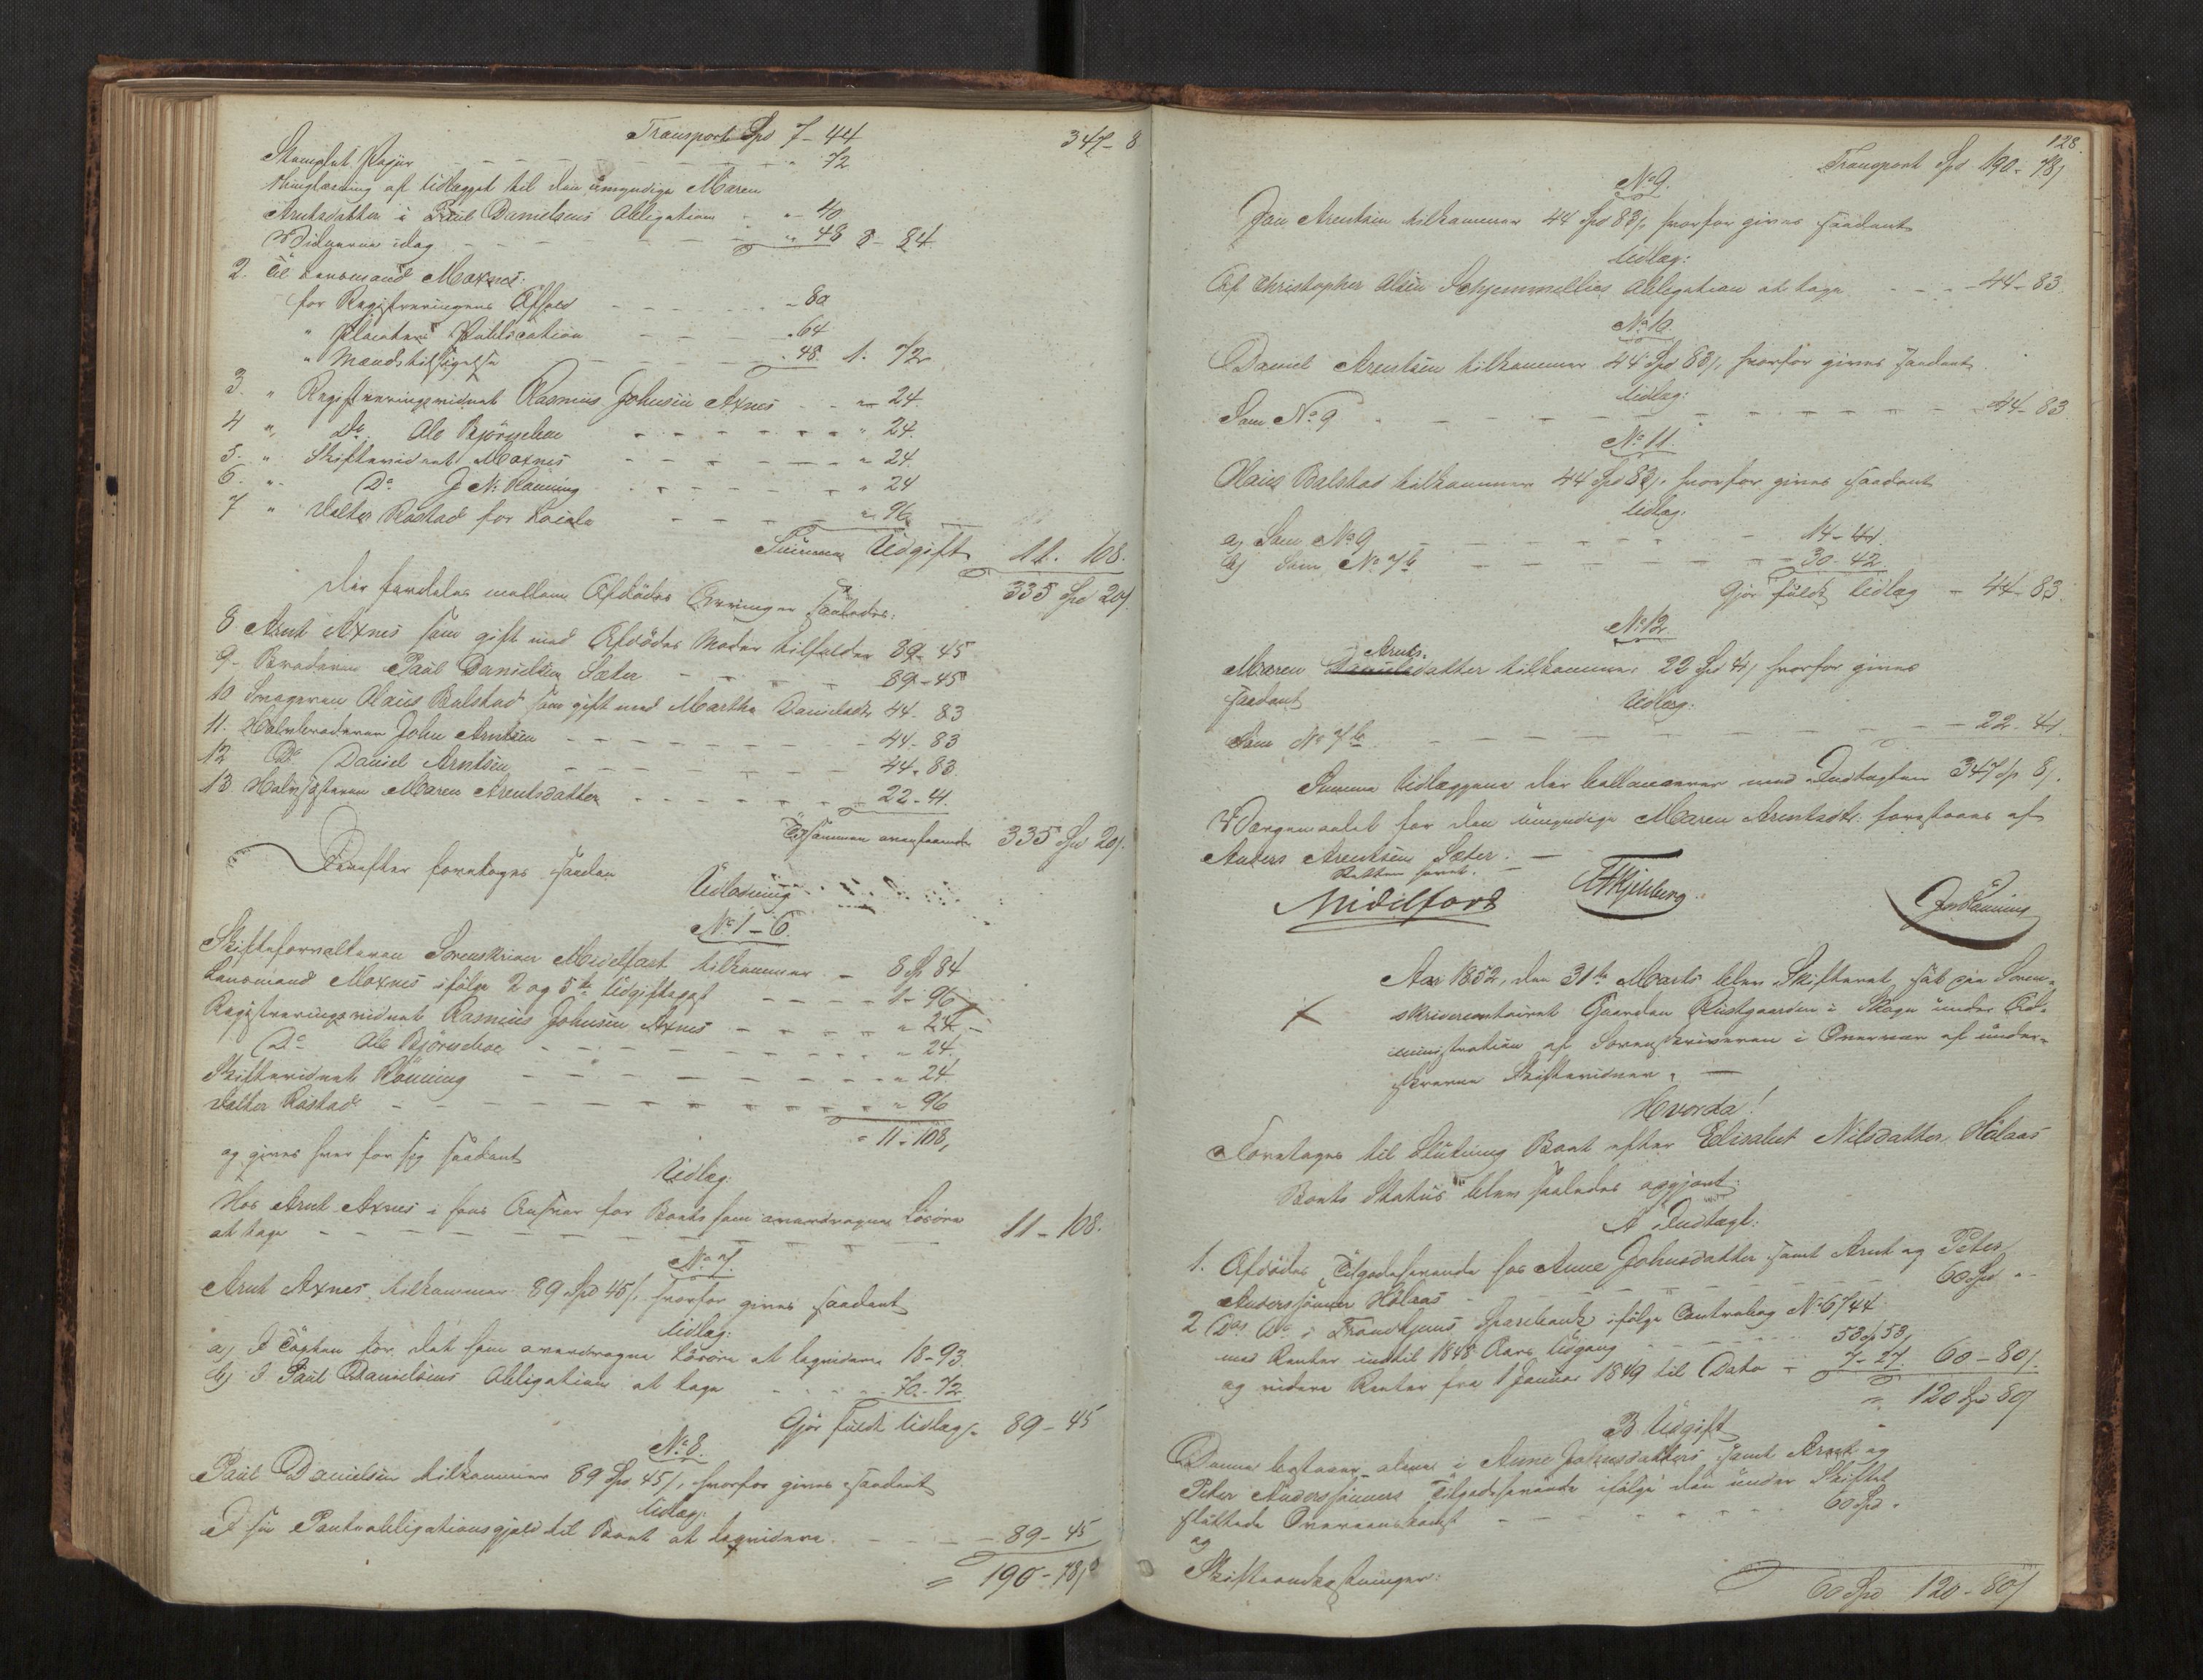 Transport Spd 7-44 347-8
Stemplet Papir - - - " 72
Thinglæsning af Udlægget til den umyndige Maren
Arntsdatter i Paul Danielsens Obligation - " 40
Vidnerne idag - - - " 48 8-84
2. Til Lensmand Moxnes:
for Registreringens Afhold - - - " 80
" Placaters Publication - - - " 64
" Mænds tilsigelse - - - " 48. 1. 72
3. " Registreringsvidnet Rasmus Johnsen Axnes - - " 24.
4 " Do Ole Björneboe - - - " 24.
5. " Skiftevidnet Moxnes - - - " 24.
6. " Do J N: Rønning - - - " 24
7 " Rostad for - - - " 96
Summa Udgift 11. 108.
335 Spd 20/.
Der fordeles mellem Afdödes Arvinger saaledes:
8 Arnt Axnes som gift med Afdödes Moder tilfalder 89-45
9. Broderen Paul Danielsen Sæter - - - 89-45
10 Svogeren Olaus Balstad som gift med Martha Danielsdtr 44-83
11. Halvbroderen John Arntsen - - - 44-83
12 Do Daniel Arntsen - - - 44-83.
13 Halvsösteren Maren Arentsdatter - - - 22-41.
Tilsammen ovenstaaende 335 Spd 20/.
Derefter foretoges saadan
Udlodning
No 1-6.
Skifteforvalteren Sorenskriver Midelfart tilkommer - 8 Sp 84
Lensmand Moxnes ifølge 2 og 5te Udgiftspost - - - 1-96
Registreringsvidnet Rasmus Johnsen Axnes - - - " 24 -
Do Ole Björneboe - - - " 24.
Skiftevidnet Rönning - - - " 24
Rostad - - - " 96
" 11-108,
og gives hver for sig saadant
Udlæg:
Hos Arnt Axnes i hans Ansvar for Boets ham overdragne Lösöre
at tage - - - 11-108.
No 7.
Arnt Axnes tilkommer 89 Spd 45/, hvorfor gives saadant
Udlæg:
a) I for det ham overdragne Lösöre at liqvidere 18-93.
b) I Paul Danielsens Obligation at tage - - - 70-72
Gjör fuldt Udlæg 89-45
No 8.
Paul Danielsen tilkommer 89 Spd 45/, hvorfor gives saadant
Udlæg:
I sin Panteobligationsgjæld til Boet at liqvidere. - - - 89-45
= 190-78/
128.
Transport Spd 190-78/
No 9.
Jon Arentsen tilkommer 44 Spd 83/, hvorfor gives saadant
Udlæg:
Af Christopher Olsen Schjemmellies Obligation at tage - - - 44-83.
No 10.
Daniel Arentsen tilkommer 44 Spd 83/, hvorfor gives saadant
Udlæg:
Som No 9 - - - 44-83
No 11.
Olaus Balstad tilkommer 44 Spd 83/, hvorfor gives saadant
Udlæg:
a) Som No 9 - - - 14-41.
b) Som No 7 b - - - 30-42
Gjör fuldt Udlæg - 44-83.
No 12.
Maren Arnts-datter tilkommer 22 Spd 41/ hvorfor gives
saadant Udlæg:
Som No 7 b - - - 22-41.
Summa Udlæggene der ballancerer med Indtægten 347 Sp 8/.
Værgemaalet for den umyndige Maren Arentsdtr: forestaaes af
Anders Arentsen Sæter. -
Retten hævet. -
Midelfart Kjelsberg JNRönning
Aar 1852, den 31te Marts blev Skifteret sat paa Soren-
skrivercontoiret Gaarden Rustgaarden i Skogn under Ad-
ministration af Sorenskriveren i Overvær af under-
skrevne Skiftevidner. -
Hvorda!
Foretoges til Slutning Boet efter Elisabet Nilsdatter Holaas
Boets Status blev saaledes opgjort:
A Indtægt:
1. Afdödes Tilgodehavende hos Anne Johnsdatter samt Arnt og Peter
Anderssönner Holaas - - - 60 Spd "
2 Do Do i Trondhjems Sparebank ifølge Contrabog No 6744
med Renter indtil 1848 Aars Udgang - - - 53 Sp 53,
og videre Renter fra 1 Januar 1849 til Dato - 7-27. 60-80/.
= 120 Spd 80/
B Udgift
Denne bestaaer alene i Anne Johnsdatters samt Arnt og
Peter Anderssönners Tilgodehavende ifølge den under Skiftet
sluttede Overeenskomst - - - 60 Spd "
og
Skifteomkostninger:
60 Spd 120-80/